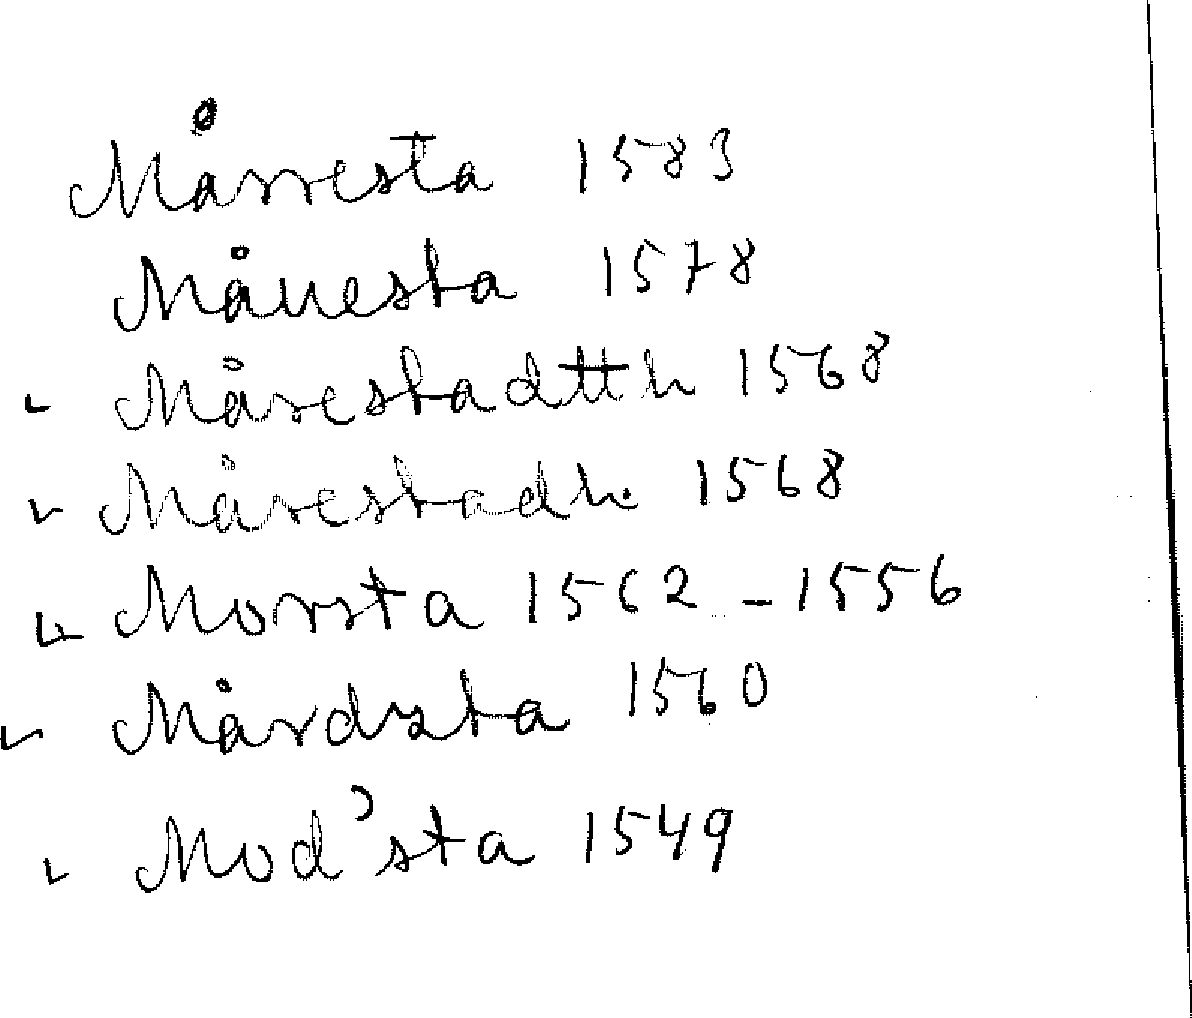 Mårresta 1583
Månesta 1578
Mårestadtth 1568
Mårestadh. 1568
Morsta 1562 - 1556
Mårdsta 1560
Mod'sta 1549